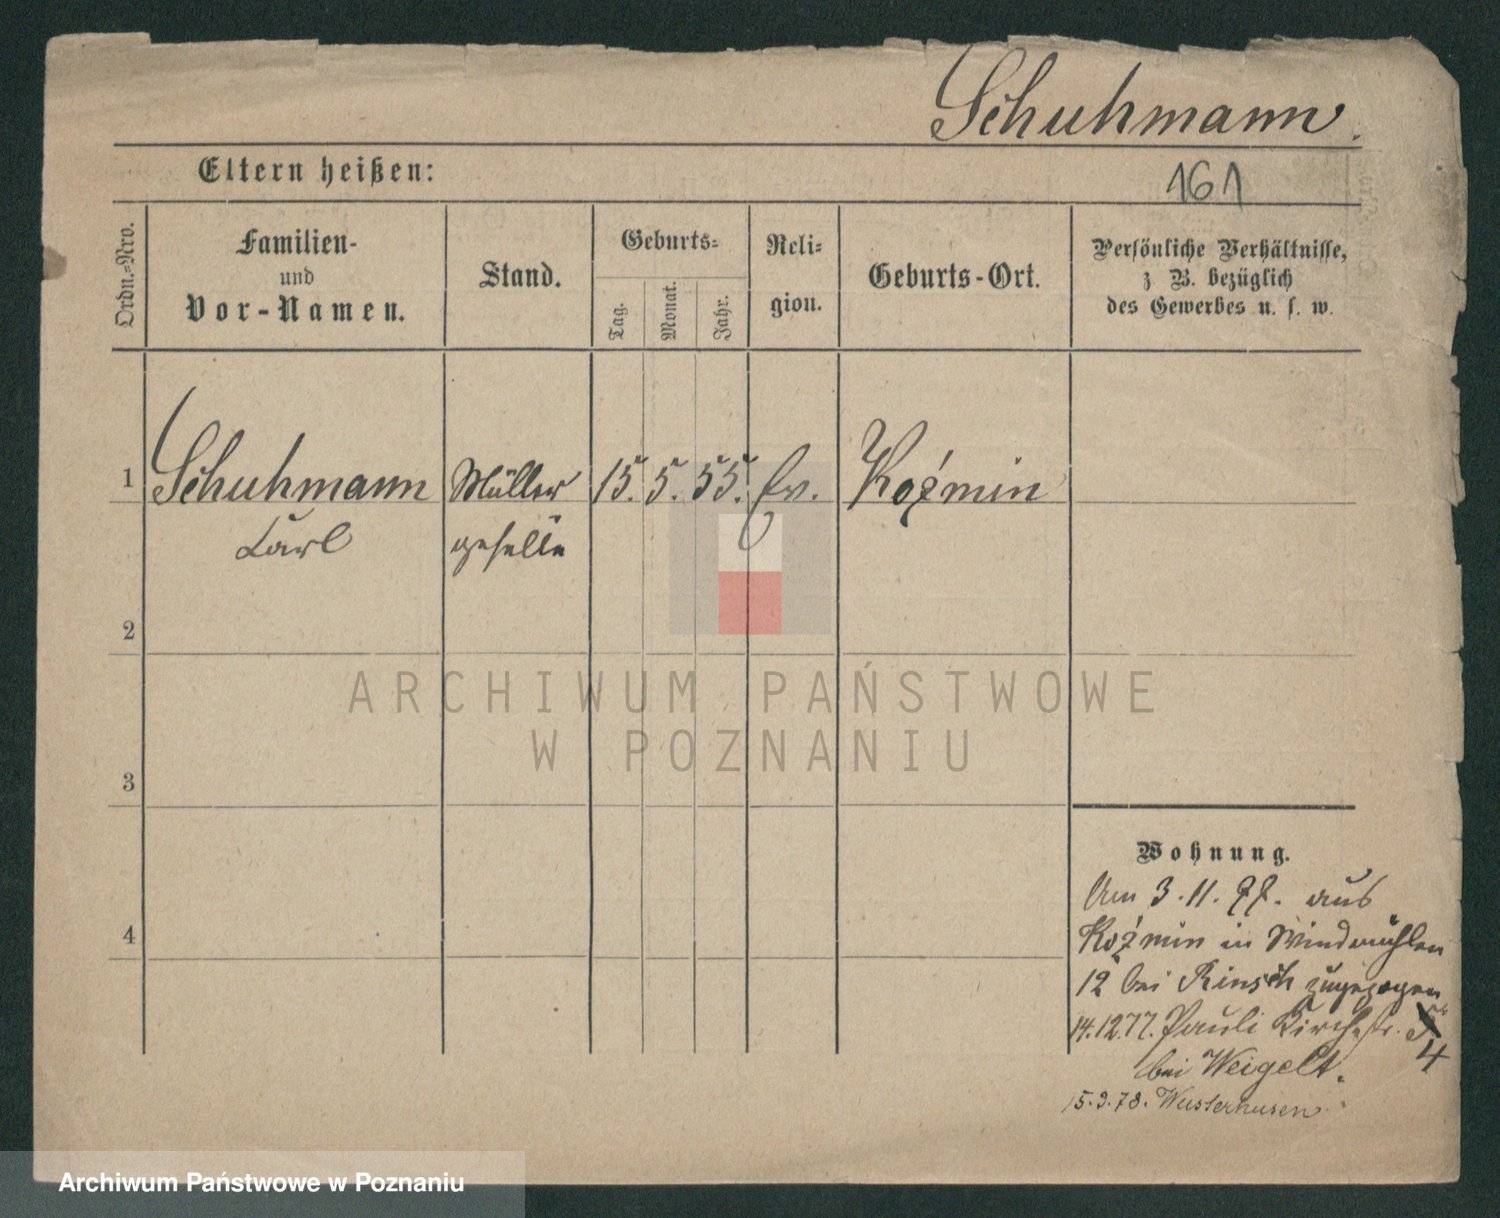 Schuhmann.
Eltern heißen:
161
Ordn.-Nro.
Familien-
und
Vor-Namen.
Stand.
Geburts-
Tag.
Monat.
Jahr.
Reli-
gion.
Geburts-Ort.
Persönliche Verhältnisse,
z B. bezüglich
des Gewerbes u. s. w.
1 Schuhmann Müller 15. 5. 55. Ev. Koźmin
Carl geselle
2
3
4
Wohnung.
Am 3.11.77. aus
Koźmin in Windmühlen
12 bei Rinsch zugezogen
14.12.77. Pauli Kirchstr. 5
4
bei Weigelt.
15.9.78. Wusterhusen
ARCHIWUM PAŃSTWOWE
W POZNANIU
Archiwum Państwowe w Poznaniu